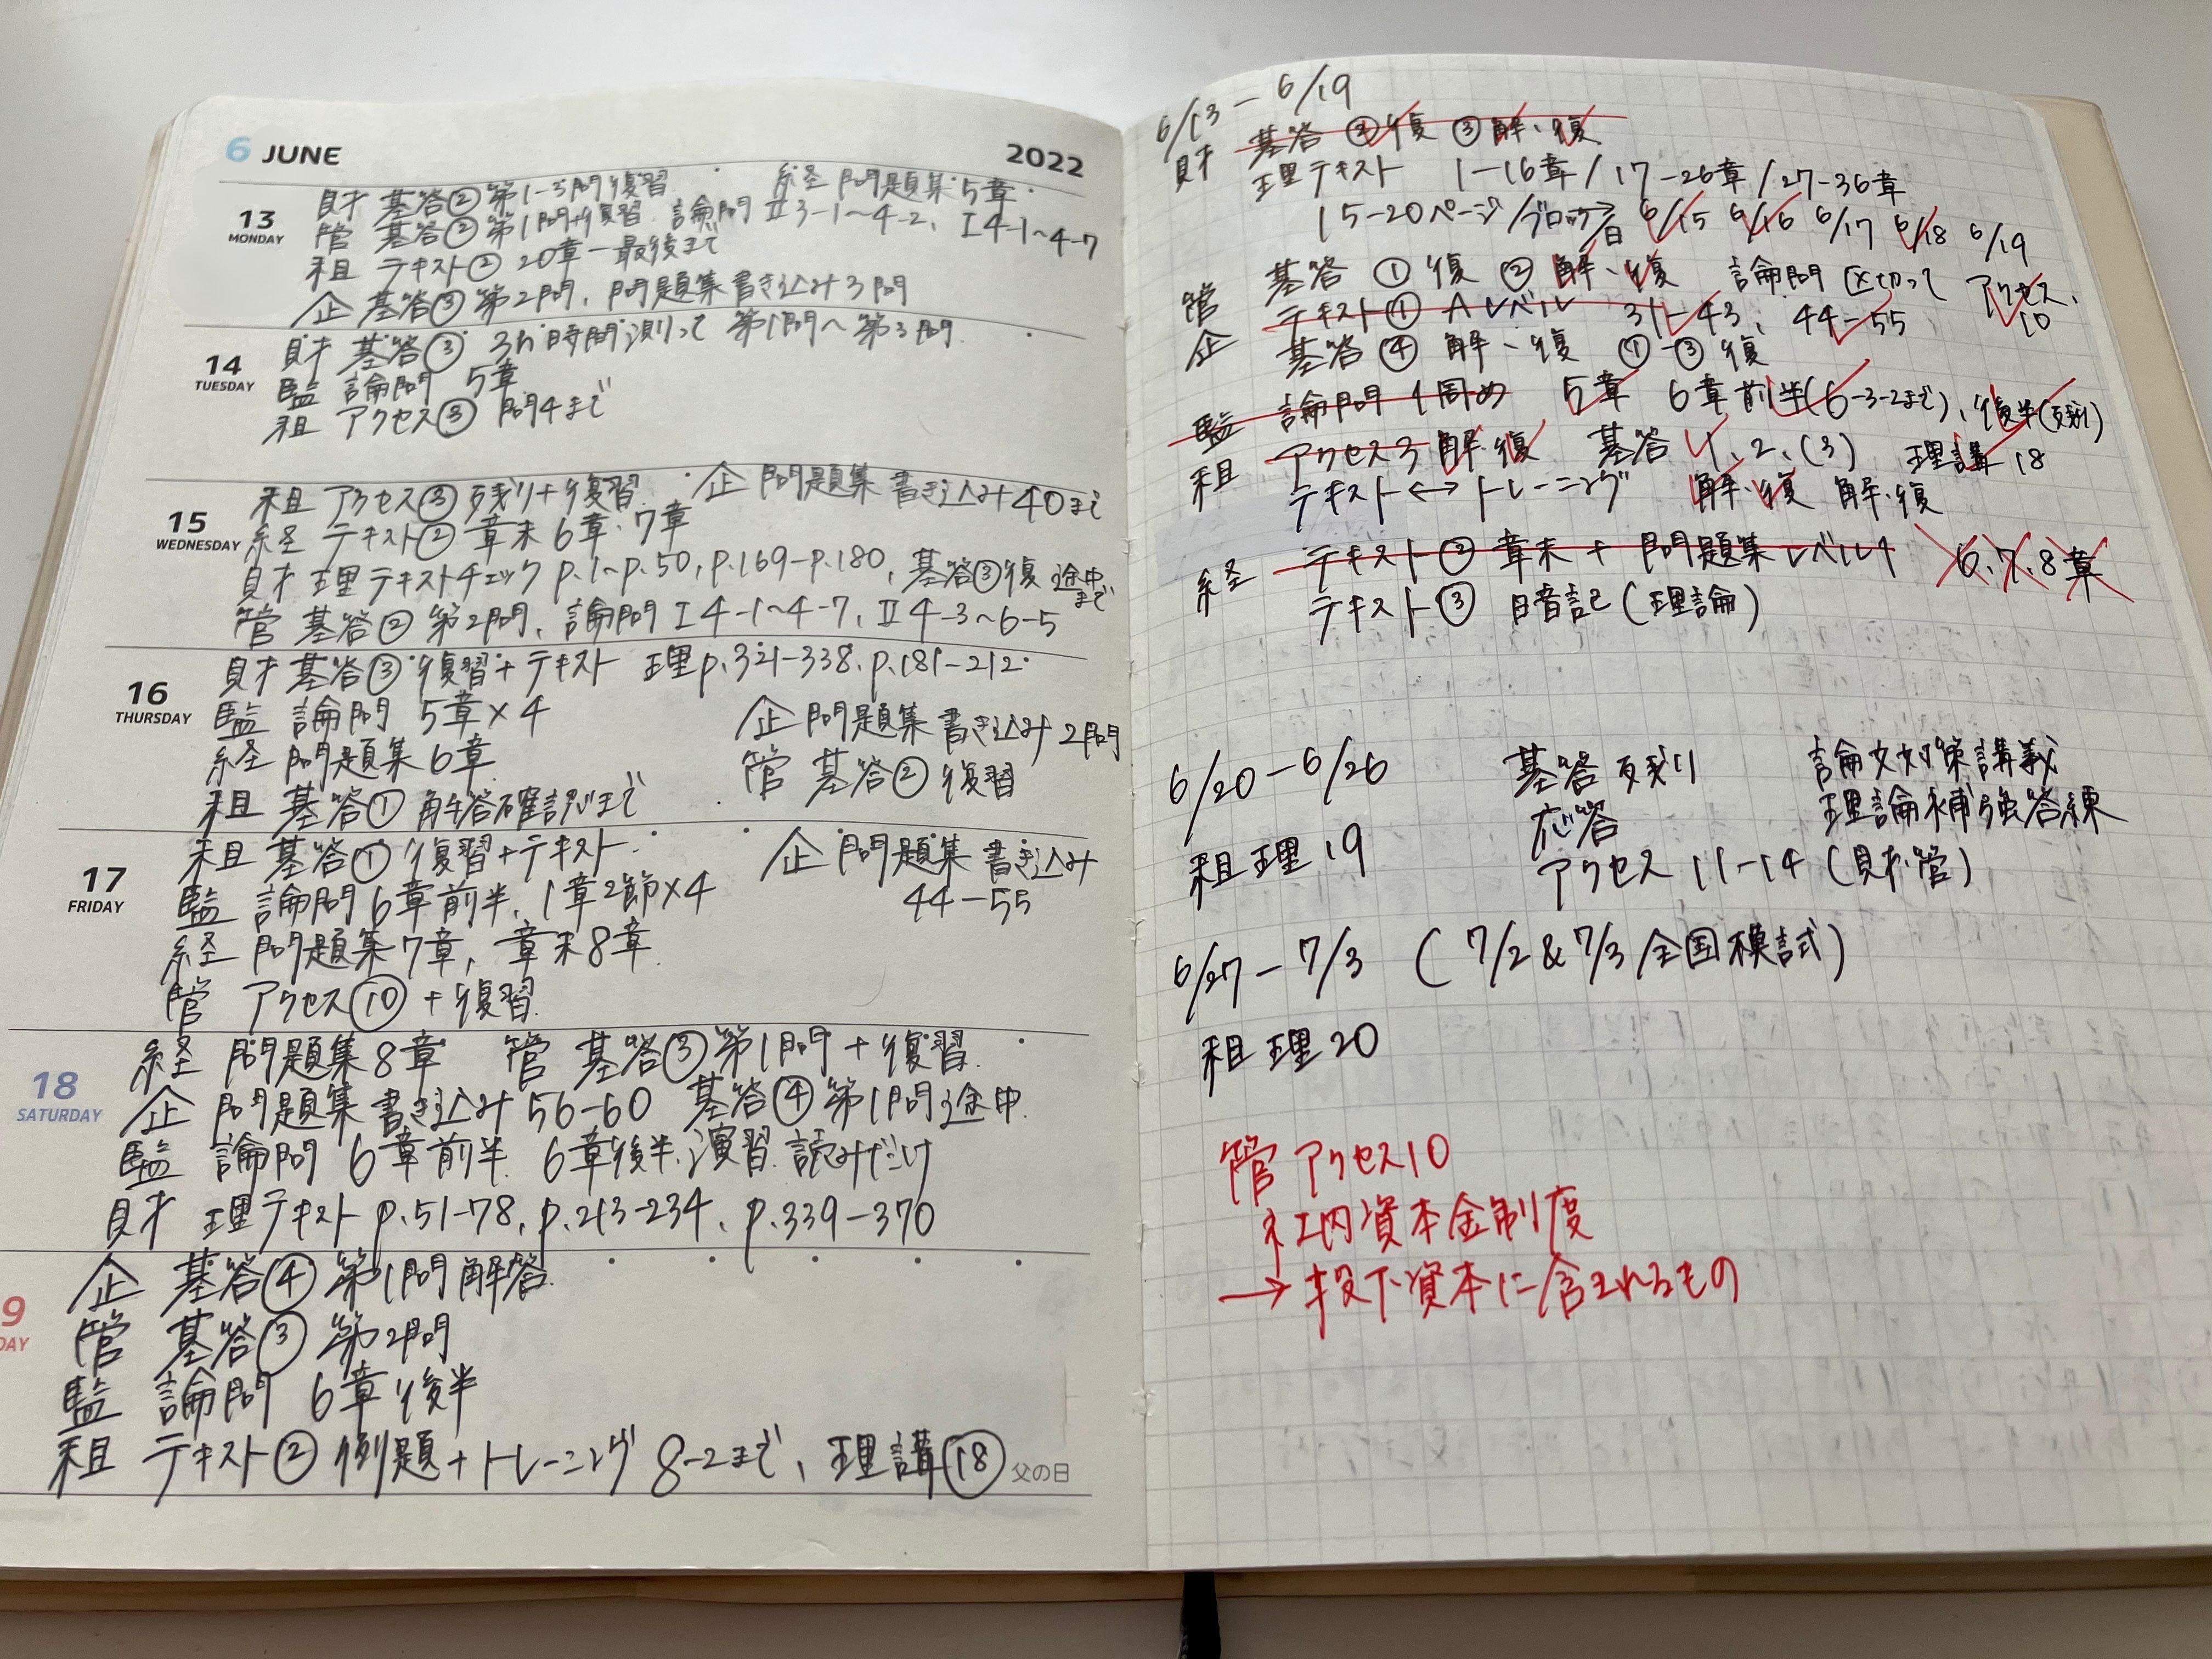 6 JUNE 2022
13 MONDAY
財 基答② 第1-3問復習 経 問題集5章
管 基答② 第1問+復習 論問 Ⅱ3-1~4-2、Ⅰ4-1~4-7
租 テキスト② 20章-最後まで
企 基答③ 第2問、問題集書き込み3問
14 TUESDAY
財 基答③ 3h時間測って 第1問~第3問
監 論問 5章
租 アクセス③ 問4まで
15 WEDNESDAY
租 アクセス③残り+復習 企 問題集 書き込み40まで
経 テキスト② 章末6章・7章
財 理テキストチェック p.1~p.50, p.169-p.180, 基答③復 途中まで
管 基答② 第2問、論問Ⅰ4-1~4-7、Ⅱ4-3~6-5
16 THURSDAY
財 基答③ 復習+テキスト 理p.321-338. p.181-212
監 論問 5章×4 企 問題集書き込み2問
経 問題集6章 管 基答② 復習
租 基答① 解答確認まで
17 FRIDAY
租 基答① 復習+テキスト 企 問題集 書き込み
監 論問6章前半、1章2節×4 44-55
経 問題集7章, 章末8章
管 アクセス⑩+復習
18 SATURDAY
経 問題集8章 管 基答③第1問+復習
企 問題集書き込み56-60 基答④第1問途中
監 論問 6章前半 6章後半、演習 読みだけ
財 理テキスト p.51-78, p.213-234、p.339-370
9 DAY
企 基答④ 第1問解答
管 基答③ 第2問
監 論問 6章後半
租 テキスト② 例題+トレーニング 8-2まで、理講⑱
父の日
6/13 - 6/19
財 基答 ②復 ③解・復
理テキスト 1-16章/17-26章/27-36章
15-20ページ/ブロック/日 6/15 6/16 6/17 6/18 6/19
管 基答 ① 復 ② 解・復 論問 区切って アクセス、10
企 テキスト① Aレベル 31-43、44-55
基答④ 解・復 ①-③ 復
監 論問1周め 5章 6章前半(6-3-2まで)、後半(残り)
租 アクセス3 解・復 基答 1、2、(3) 理講18
テキスト↔トレーニング 解・復 解・復
経 テキスト② 章末 + 問題集レベル1 6、7、8章
テキスト③ 暗記(理論)
6/20-6/26 基答残り 論文対策講義
応答 理論補強答練
租理19 アクセス 11-14 (財・管)
6/27-7/3 (7/2&7/3 全国模試)
租理20
管 アクセス10
社内資本金制度
→投下資本に含まれるもの